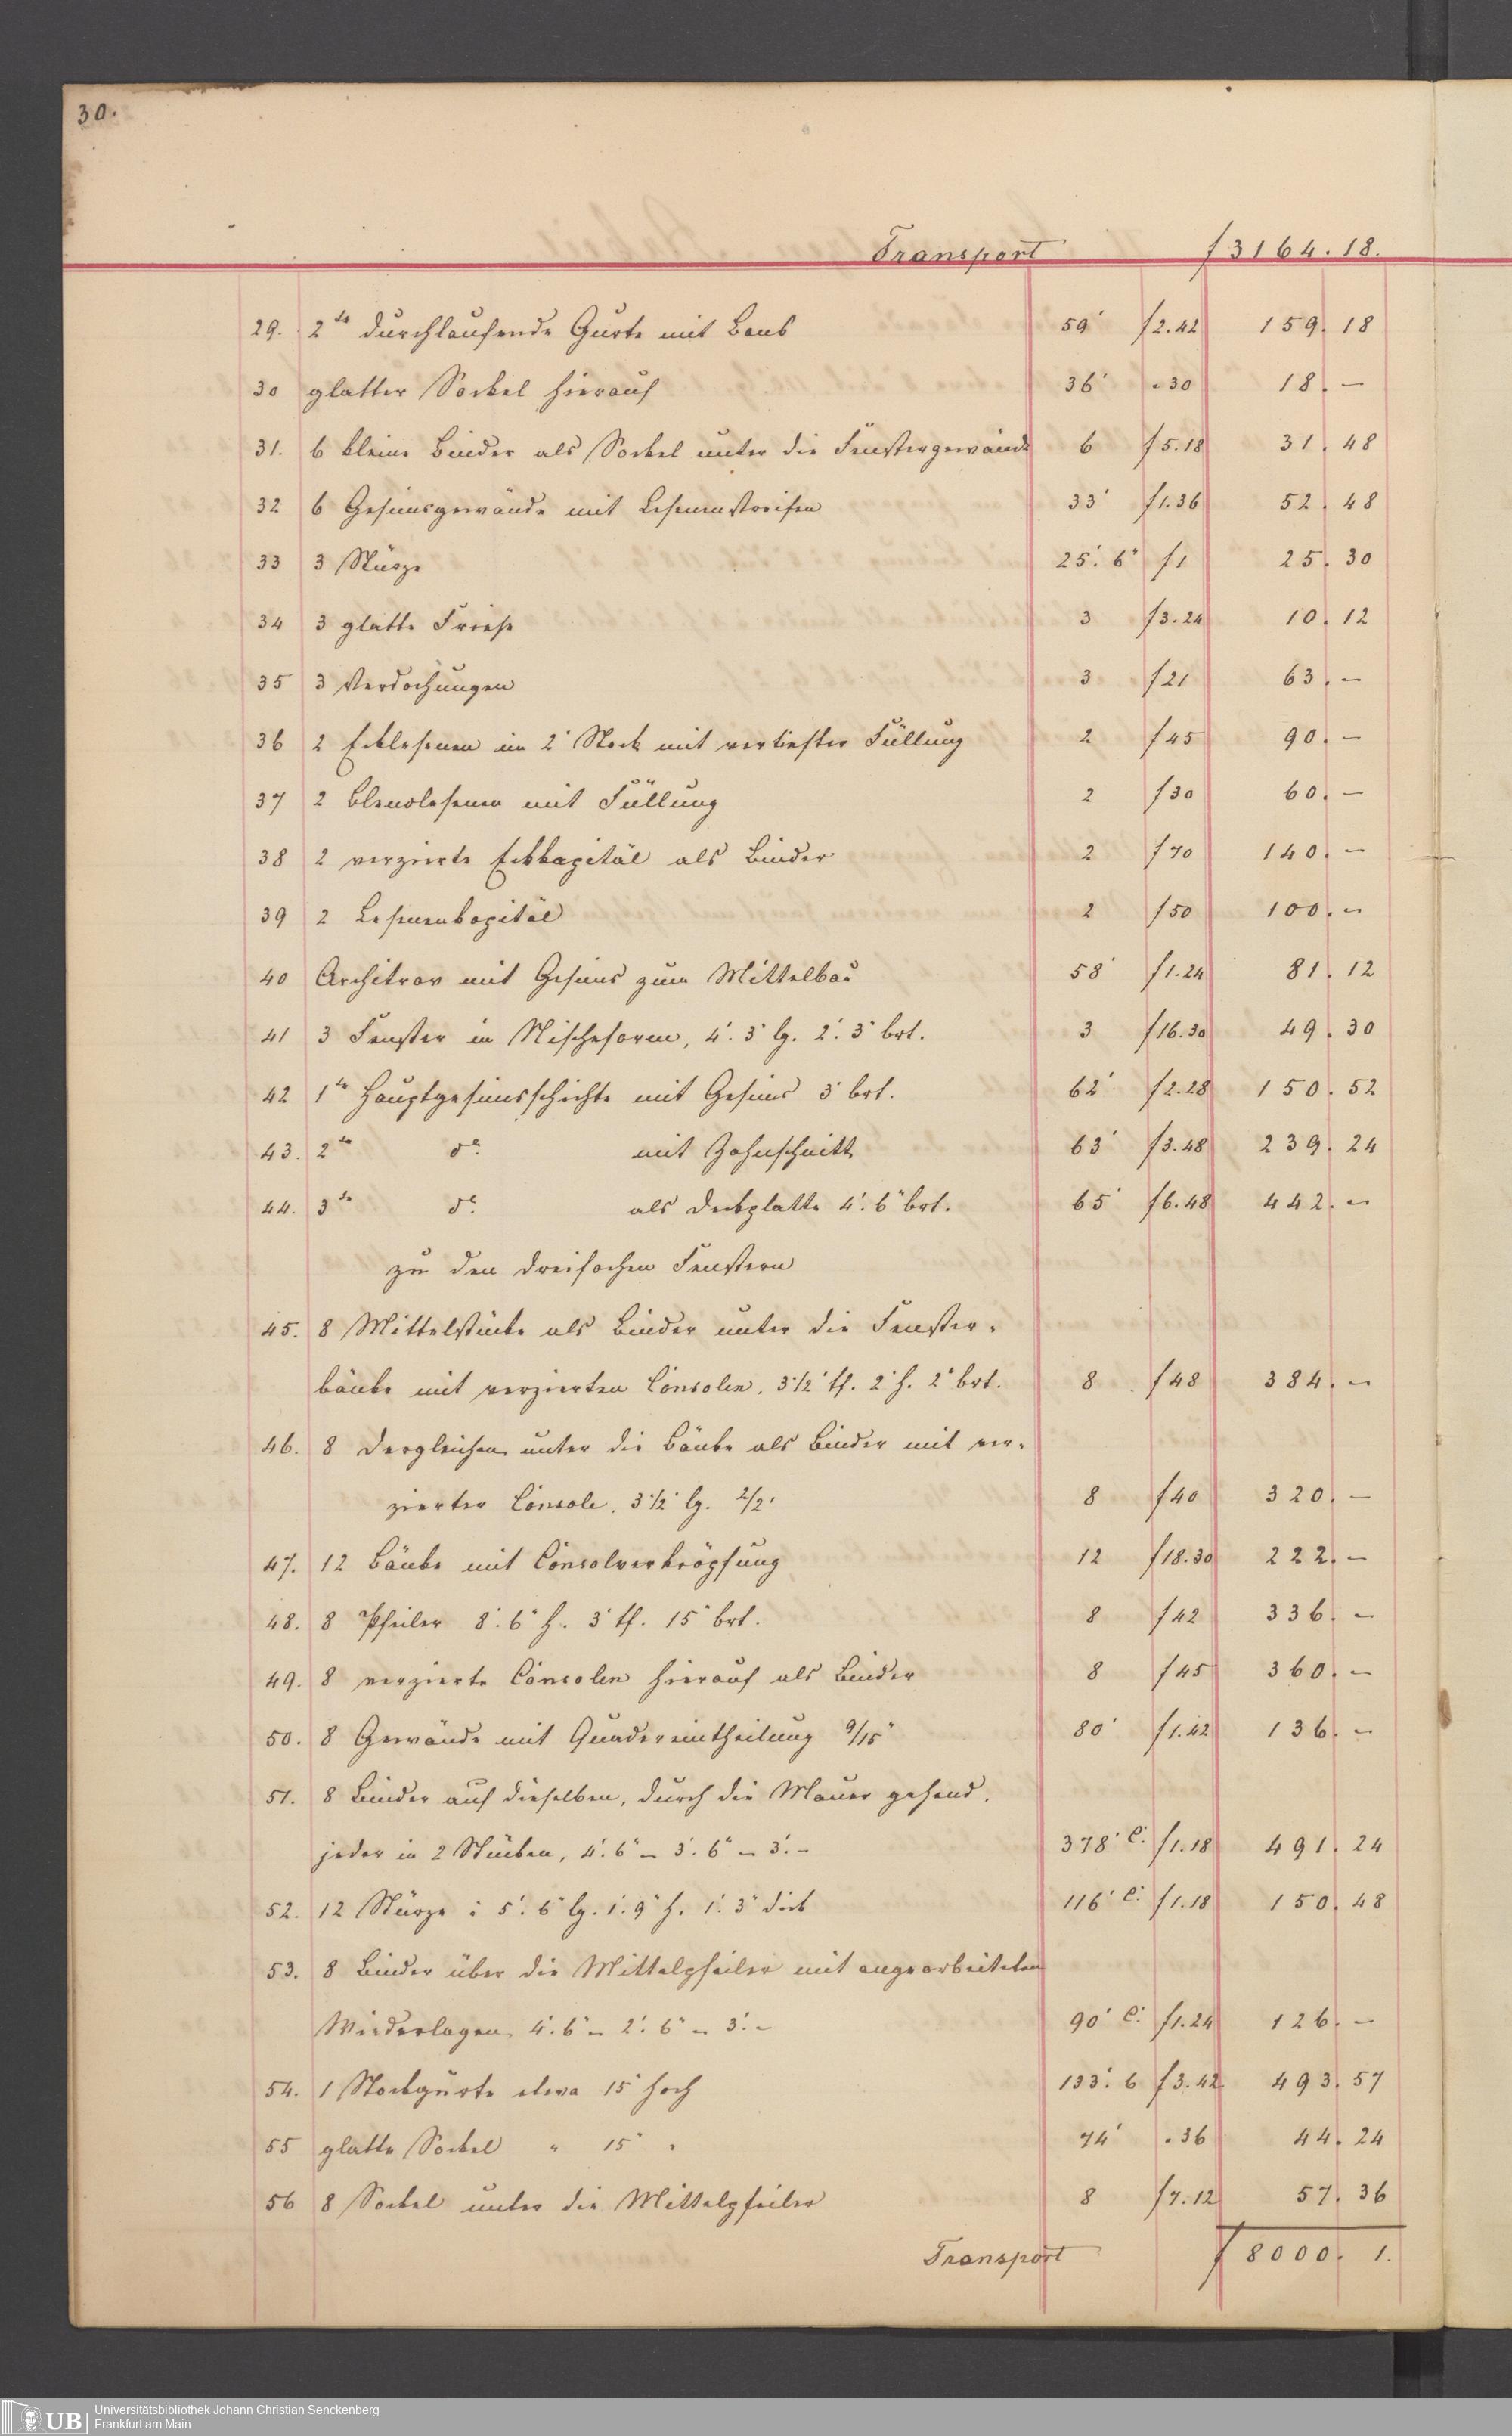 30.
Transport f 3164. 18.
29. 2te durchlaufende Gurte mit Laub 59' f 2.42 159. 18
30 glatter Sockel hierauf 36' " 30 18. —
31. 6 kleine Binder als Sockel unter die Fenstergewände 6 f 5.18 31. 48
32 6 Gesimsgewände mit Lesenenstreifen 33' f 1.36 52. 48
33 3 Stürze 25'. 6" f 1 25. 30
34 3 glatte Friese 3 f 3.24 10. 12
35 3 Verdachungen 3 f 21 63. —
36 2 Ecklesenen im 2' Stock mit vertiefter Füllung 2 f 45 90. —
37 2 Blendlesenen mit Füllung 2 f 30 60. —
38 2 verzierte Eckkapitäl als Binder 2 f 70 140. —
39 2 Lesenenkapitäl 2 f 50 100. —
40 Architrav mit Gesims zum Mittelbau 58' f 1.24 81. 12
41 3 Fenster in Nischeform, 4'. 3" lg. 2'. 3" brt. 3 f 16.30 49. 30
42 1te Hauptgesimsschichte mit Gesims 3' brt. 62' f 2.28 150. 52
43. 2te do. mit Zahnschnitt 63' f 3.48 239. 24
44. 3te do. als Deckplatte 4'. 6" brt. 65' f 6.48 442. —
zu den dreifachen Fenstern
45. 8 Mittelstücke als Binder unter die Fenster-
bänke mit verzierten Consolen. 3 1/2' tf. 2' h. 2' brt. 8 f 48 384. —
46. 8 dergleichen unter die Bänke als Binder mit ver-
zierter Console. 3 1/2' lg. 2/2' 8 f 40 320. —
47. 12 Bänke mit Consolverkröpfung 12 f 18.30 222. —
48. 8 Pfeiler 8'. 6" h. 3' tf. 15" brt. 8 f 42 336. —
49. 8 verzierte Consolen hierauf als Binder 8 f 45 360. —
50. 8 Gewände mit Quadereintheilung 9/15" 80' f 1.42 136. —
51. 8 Binder auf dieselben, durch die Mauer gehend,
jeder in 2 Stücken, 4'. 6" – 3'. 6" – 3'. – 378' C. f 1.18 491. 24
52. 12 Stürze : 5'. 6" lg. 1'. 9" h. 1'. 3" dick 116' C. f 1.18 150. 48
53. 8 Binder über die Mittelpfeiler mit angearbeiteten
Wiederlagen 4'. 6" – 2'. 6" – 3'. – 90' C. f 1.24 126. —
54. 1 Stockgurte etwa 15" hoch 133'. 6 f 3.42 493. 57
55 glatte Sockel " 15" " 74' " 36 44. 24
56 8 Sockel unter die Mittelpfeiler 8 f 7.12 57. 36
Transport f 8000. 1.
UB Universitätsbibliothek Johann Christian Senckenberg
Frankfurt am Main